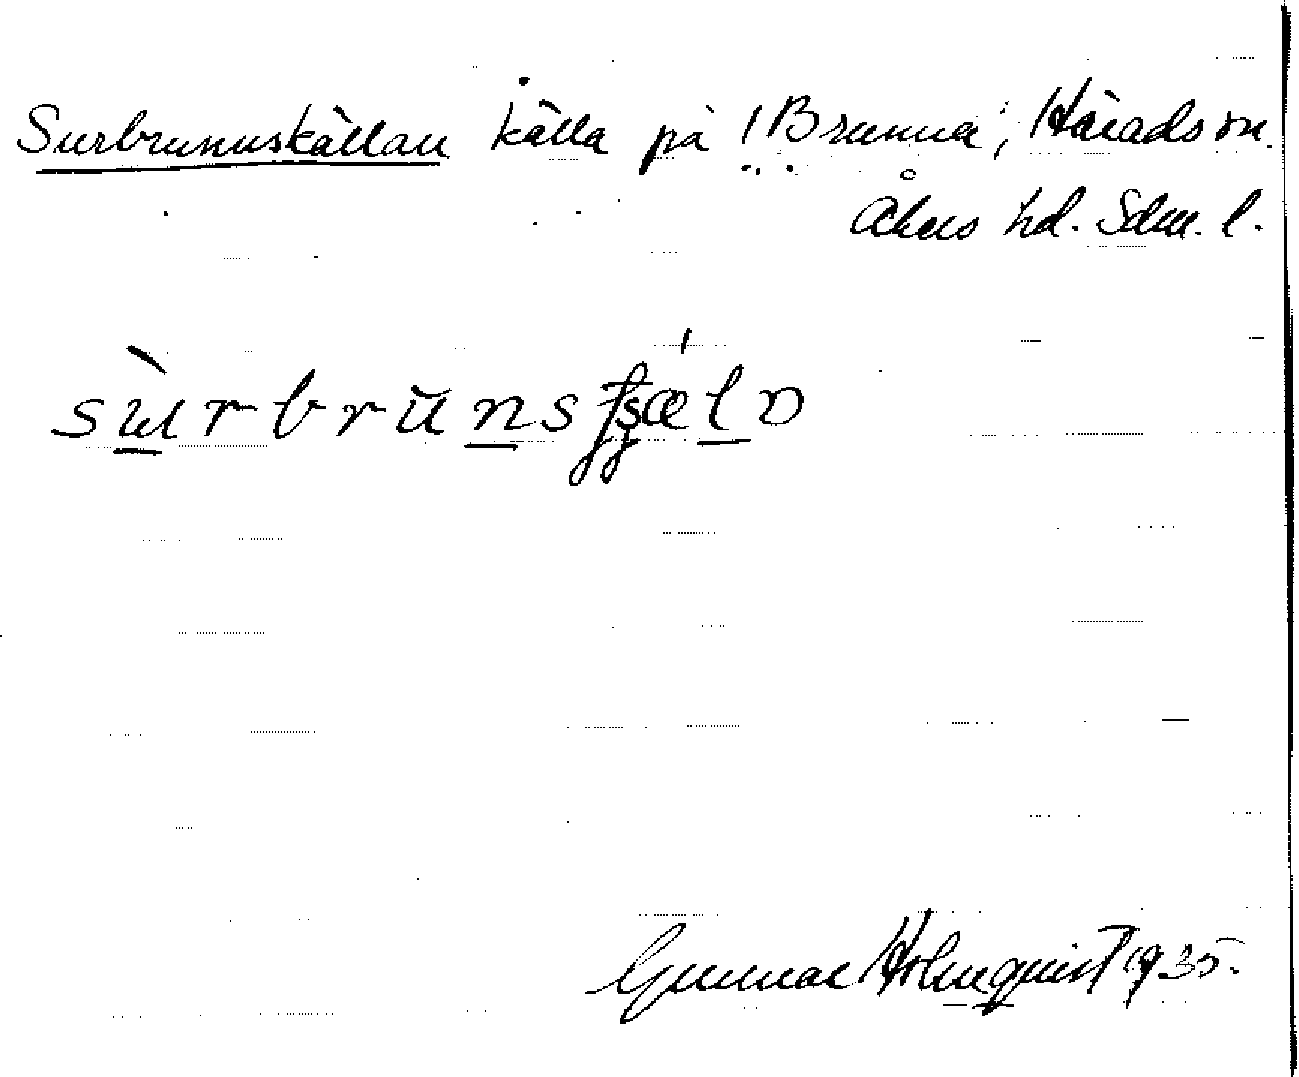 Surbrunnskällan källa på "Brunna", Härads sn.
Åkers hd. Sdm. l.
sùrbrunsʃʂæ'lɒ
Gunnar Holmquist 1935.